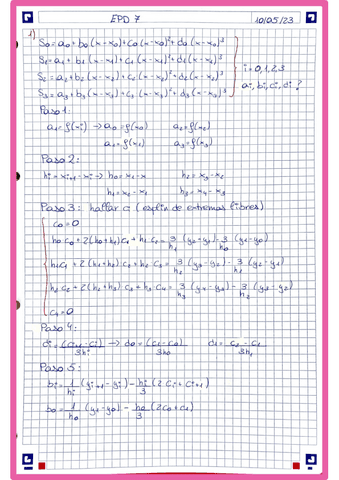 EPD 7
10/05/23
1)
S0 = a0 + b0 (x-x0) + c0 (x-x0)² + d0 (x-x0)³
S1 = a1 + b1 (x-x1) + c1 (x-x1)² + d1 (x-x1)³
S2 = a2 + b2 (x-x2) + c2 (x-x2)² + d2 (x-x2)³
S3 = a3 + b3 (x-x3) + c3 (x-x3)² + d3 (x-x3)³
i = 0,1,2,3
ai, bi, ci, di ?
Paso 1:
ai = f(xi) → a0 = f(x0) a2 = f(x2)
a1 = f(x1) a3 = f(x3)
Paso 2:
hi = xi+1 - xi → h0 = x1 - x h2 = x3 - x2
h1 = x2 - x1 h3 = x4 - x3
Paso 3: hallar c (esplin de extremos libres)
c0 = 0
h0 c0 + 2(h0+h1) c1 + h1 c2 = 3/h1 (y2-y1) - 3/h0 (y1-y0)
h1 c1 + 2(h1+h2) c2 + h2 c3 = 3/h2 (y3-y2) - 3/h1 (y2-y1)
h2 c2 + 2(h2+h3) c3 + h3 c4 = 3/h3 (y4-y3) - 3/h2 (y3-y2)
c4 = 0
Paso 4:
di = (ci+1 - ci)/3hi → d0 = (c1-c0)/3h0 d1 = c2-c1/3h1
Paso 5:
bi = 1/hi (yi+1 - yi) - hi/3 (2ci + ci+1)
b0 = 1/h0 (y1-y0) - h0/3 (2c0+c1)